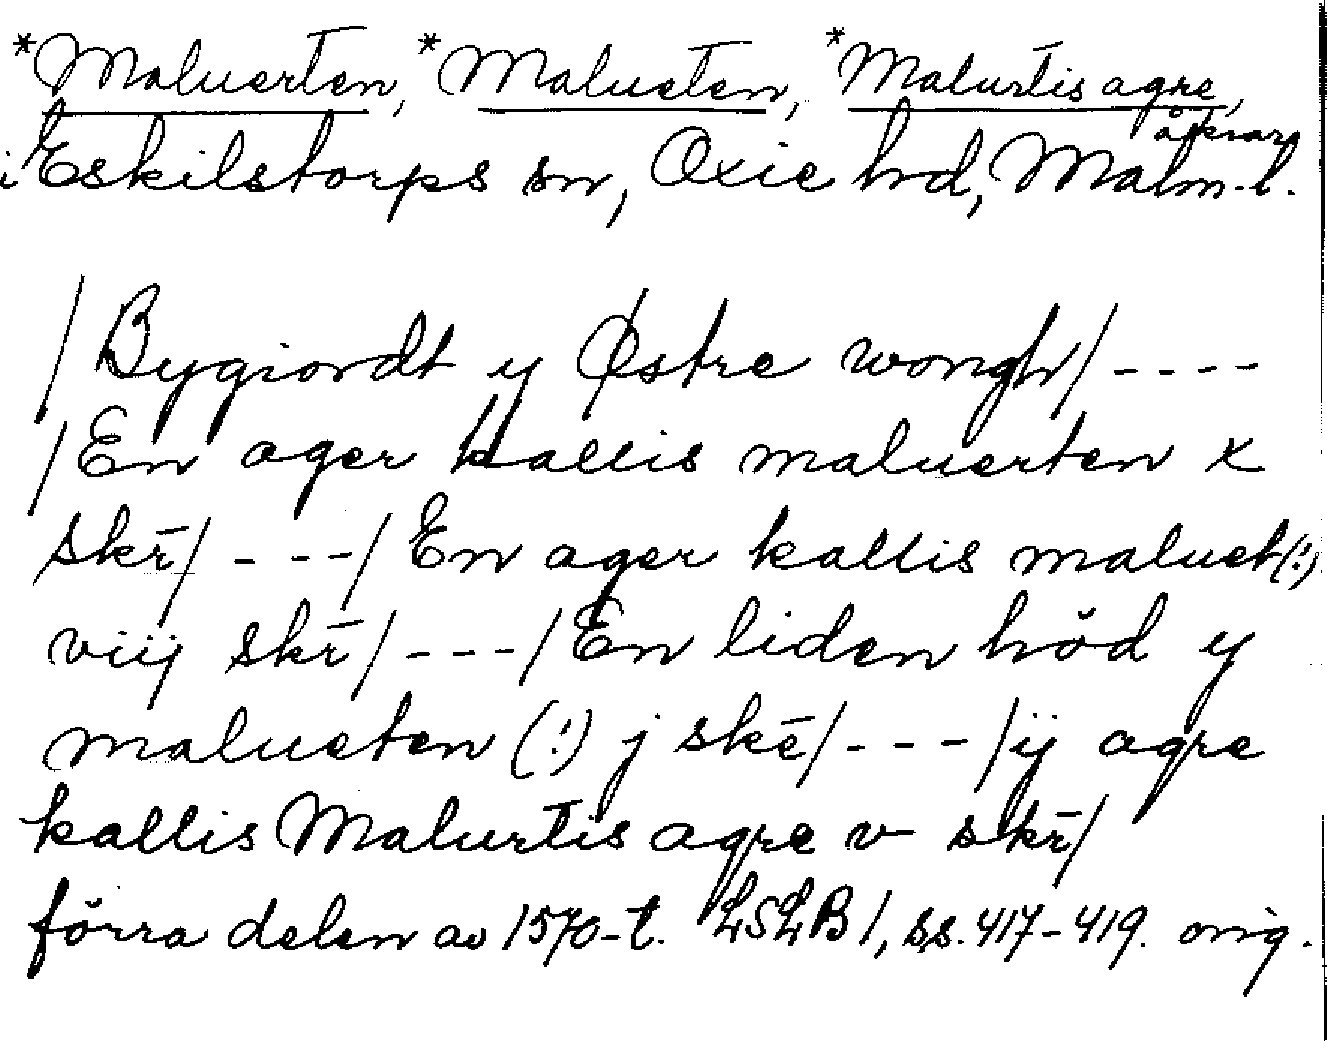 *Maluerten, *Malueten, *Malurtis agre,
åkrar
i Eskilstorps sn, Oxie hd, Malm-l.
/Bygiordt y Østre wongh/----
/En ager kallis maluerten x
skr̄/---/En ager kallis maluet(!)
viij skr̄/---/En liden höd y
malueten (!) j skē/---/ij agre
kallis Malurtis agre v skr̄/
förra delen av 1570-t. LSLB 1, ss. 417-419. orig.